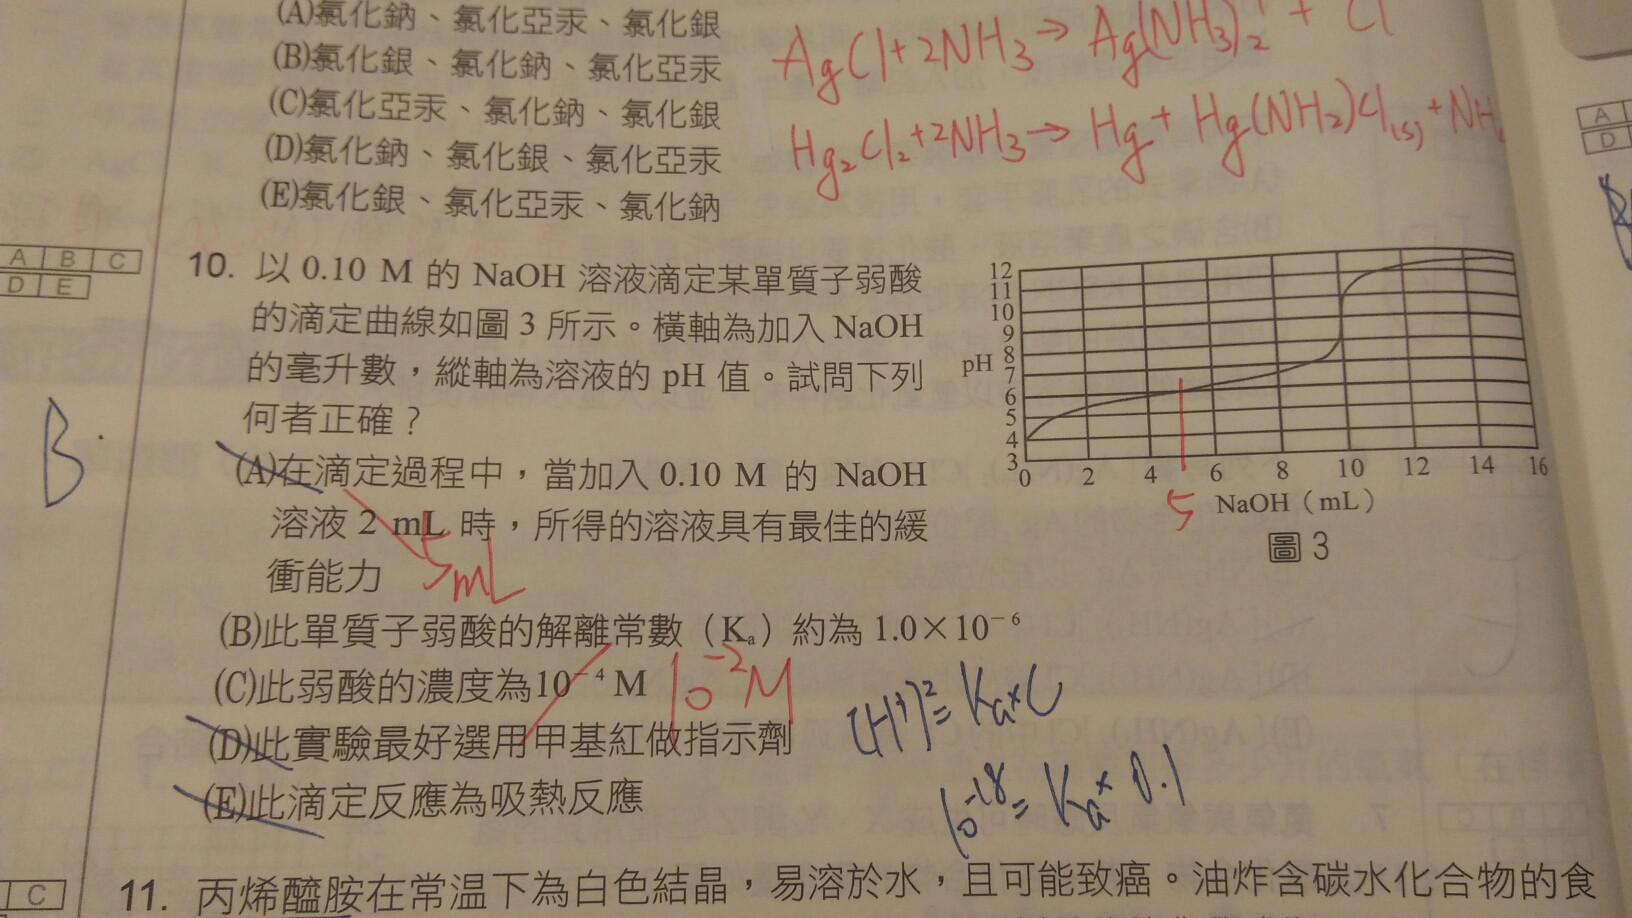 (A)氯化鈉、氯化亞汞、氯化銀
(B)氯化銀、氯化鈉、氯化亞汞
(C)氯化亞汞、氯化鈉、氯化銀
(D)氯化鈉、氯化銀、氯化亞汞
(E)氯化銀、氯化亞汞、氯化鈉
AgCl+2NH3→Ag(NH3)2+ + Cl
Hg2Cl2+2NH3→Hg+Hg(NH2)Cl(s)+NH
A B C
D E
B
10. 以 0.10 M 的 NaOH 溶液滴定某單質子弱酸
的滴定曲線如圖 3 所示。橫軸為加入 NaOH
的毫升數，縱軸為溶液的 pH 值。試問下列
何者正確？
(A)在滴定過程中，當加入 0.10 M 的 NaOH
溶液 2 mL 時，所得的溶液具有最佳的緩
衝能力
5mL
(B)此單質子弱酸的解離常數（Ka）約為 1.0×10−6
(C)此弱酸的濃度為10−4 M
10-2M
(D)此實驗最好選用甲基紅做指示劑
(E)此滴定反應為吸熱反應
[H+]2=Ka×C
10-18=Ka×0.1
12
11
10
9
8
7
6
5
4
3
pH
0 2 4 6 8 10 12 14 16
5
NaOH（mL）
圖 3
A
D
C
11. 丙烯醯胺在常溫下為白色結晶，易溶於水，且可能致癌。油炸含碳水化合物的食